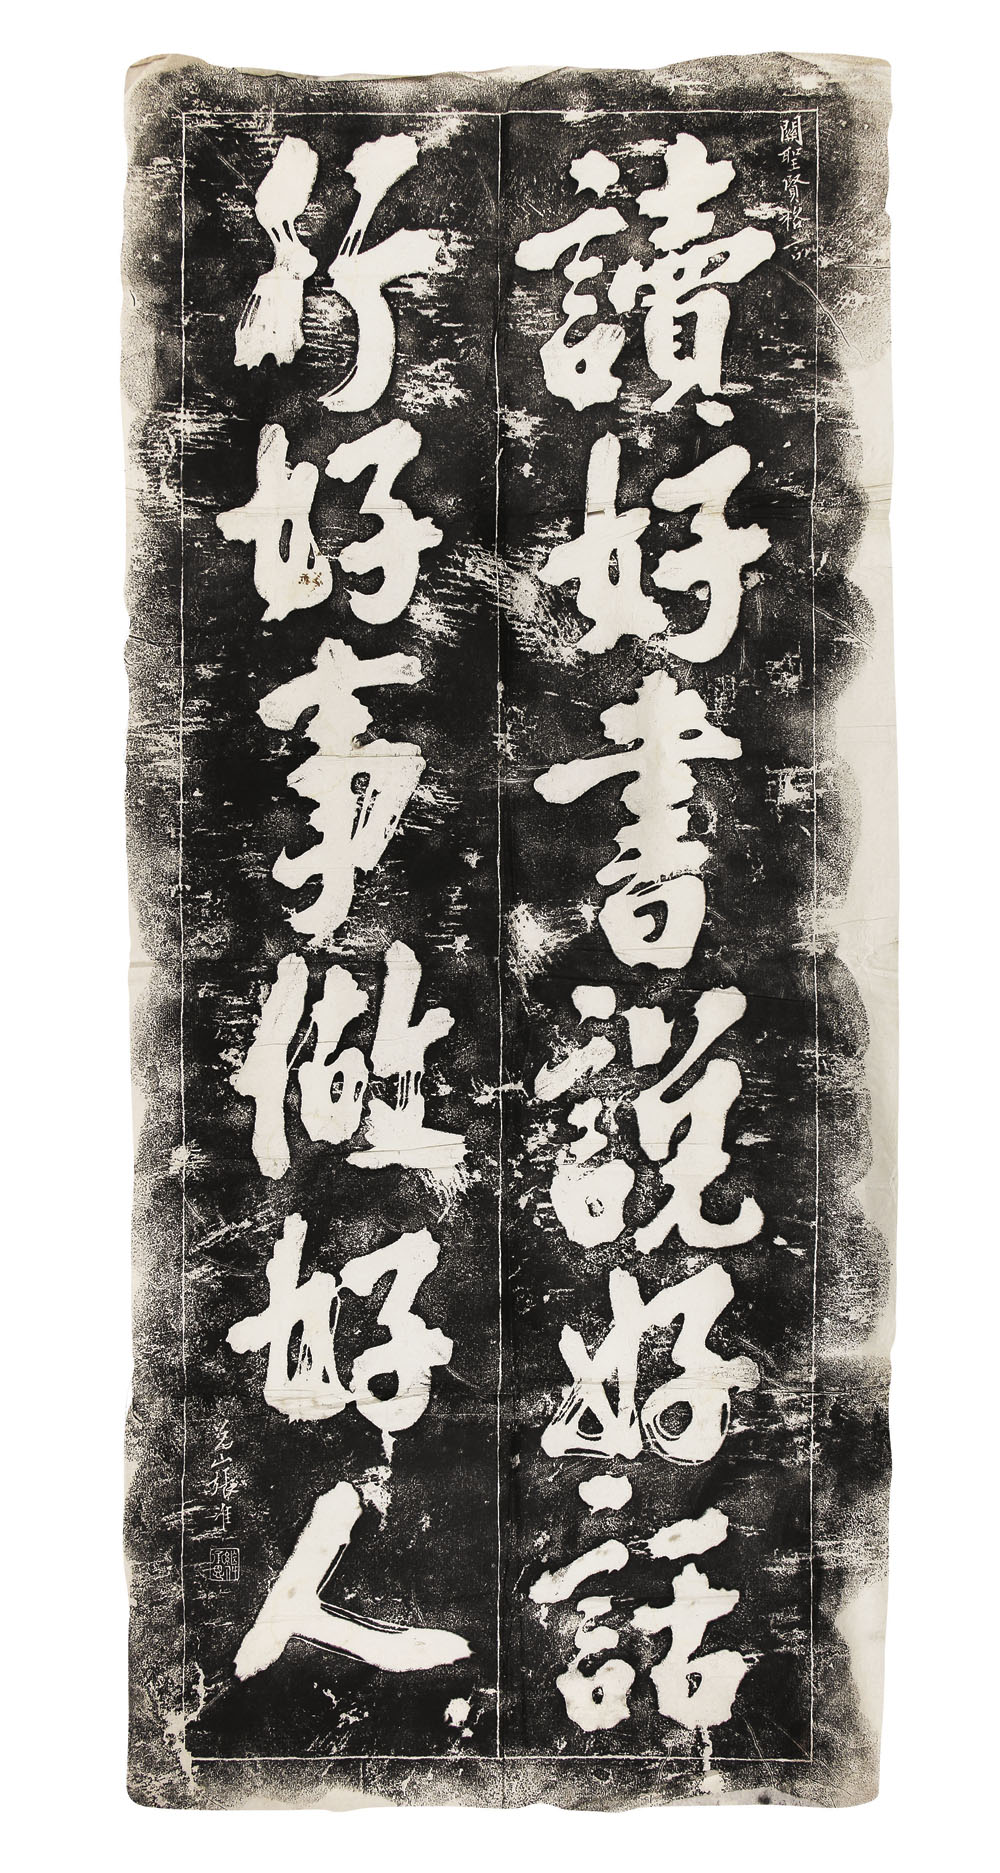 關聖賢格言
讀好書說好話
行好事做好人